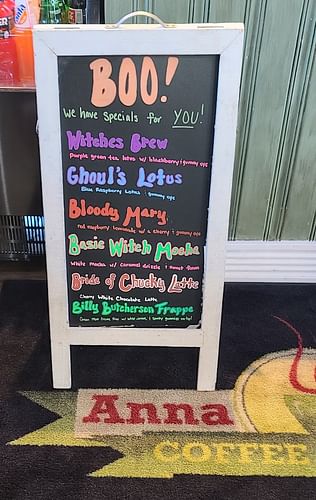 BOO!
We have specials for YOU!
Witches Brew
purple green tea lotus w/ blackberry & gummy eyes
Ghoul's Lotus
Blue Raspberry Lotus & gummy
Bloody Mary
red raspberry lemonade w/ a cherry & gummy eyes
Basic Witch Mocha
white mocha w/ caramel drizzle & sweet
Bride of Chucky Latte
Cherry White Chocolate Latte
Billy Butcherson Frappe
Anna
COFFEE